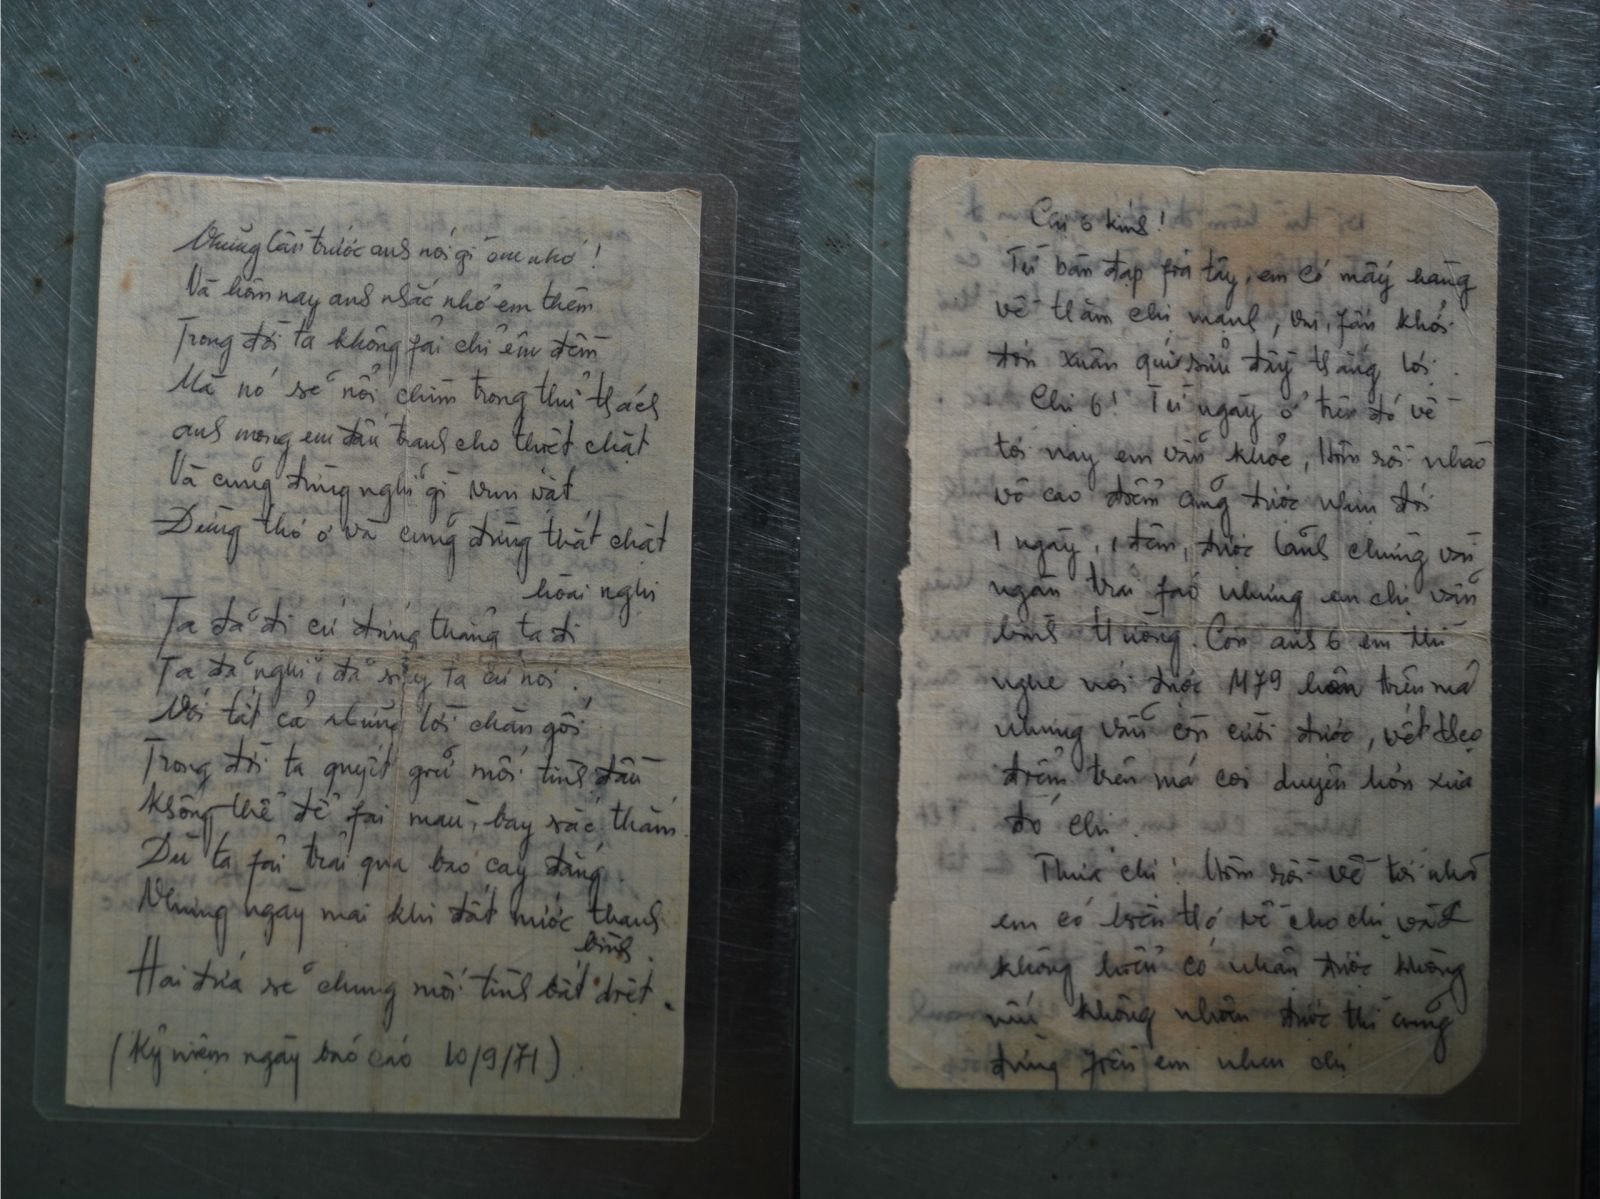 Những lần trước anh nói gì em nhớ!
Và hôm nay anh nhắc nhở em thêm
Trong đời ta không fải chỉ êm đềm
Mà nó sẽ nổi chìm trong thử thách
anh mong em đấu tranh cho thiệt chặt
Và cũng đừng nghĩ gì vụn vặt
Đừng thờ ơ và cũng đừng thắt chặt
hoài nghi
Ta đã đi cứ đứng thẳng ta đi
Ta đã nghĩ, đã ta cứ nói.
Với tất cả những lời chăn gối
Trong đời ta quyết giữ mối tình đầu
Không thể để fai màu, bay sắc thắm.
Dù ta fải trải qua bao cay đắng.
Nhưng ngày mai khi đất nước thanh
bình.
Hai đứa sẽ chung mối tình bất diệt.
(Kỷ niệm ngày báo cáo 10/9/71)
Chị 6 kính!
Từ bàn đạp fía tây, em có mấy hàng
về thăm chị mạnh, vui, fấn khởi
đón xuân quí sửu đầy thắng lợi.
Chị 6! Từ ngày ở trên đó về
tới nay em vẫn khỏe, Hôm rồi nhào
vô cao điểm cũng được nhịn đói
1 ngày, 1 đêm, được lãnh chừng vài
ngàn trái fáo nhưng em chị vẫn
bình thường. Còn anh 6 em thì
nghe nói được M79 hôn trên má
nhưng vẫn còn cười được, vết thẹo
điểm trên má coi duyên hơn xưa
đó chị.
Thưa chị! Hôm rồi về tới nhà
em có biên thơ về cho chị, vậy
không hiểu có nhận được không
nếu không nhận được thì cũng
đừng fiền em nhen chị